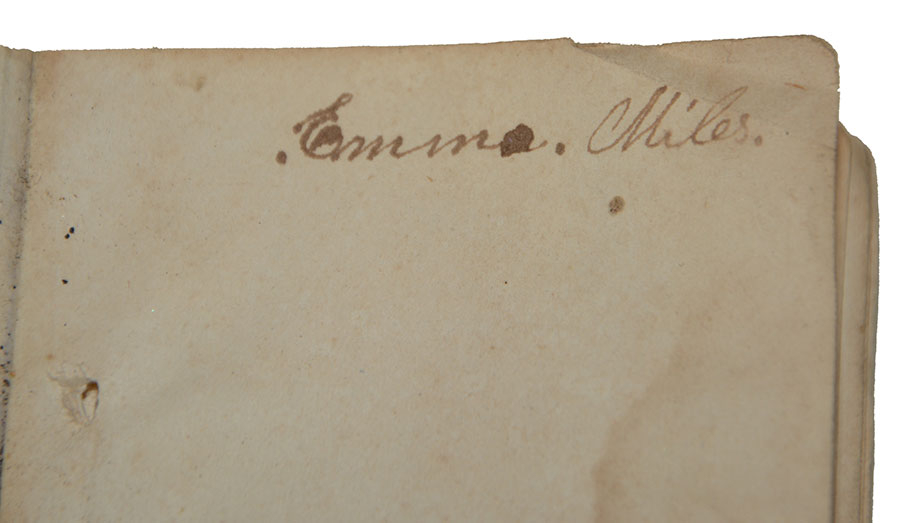 .Emma. Miles.